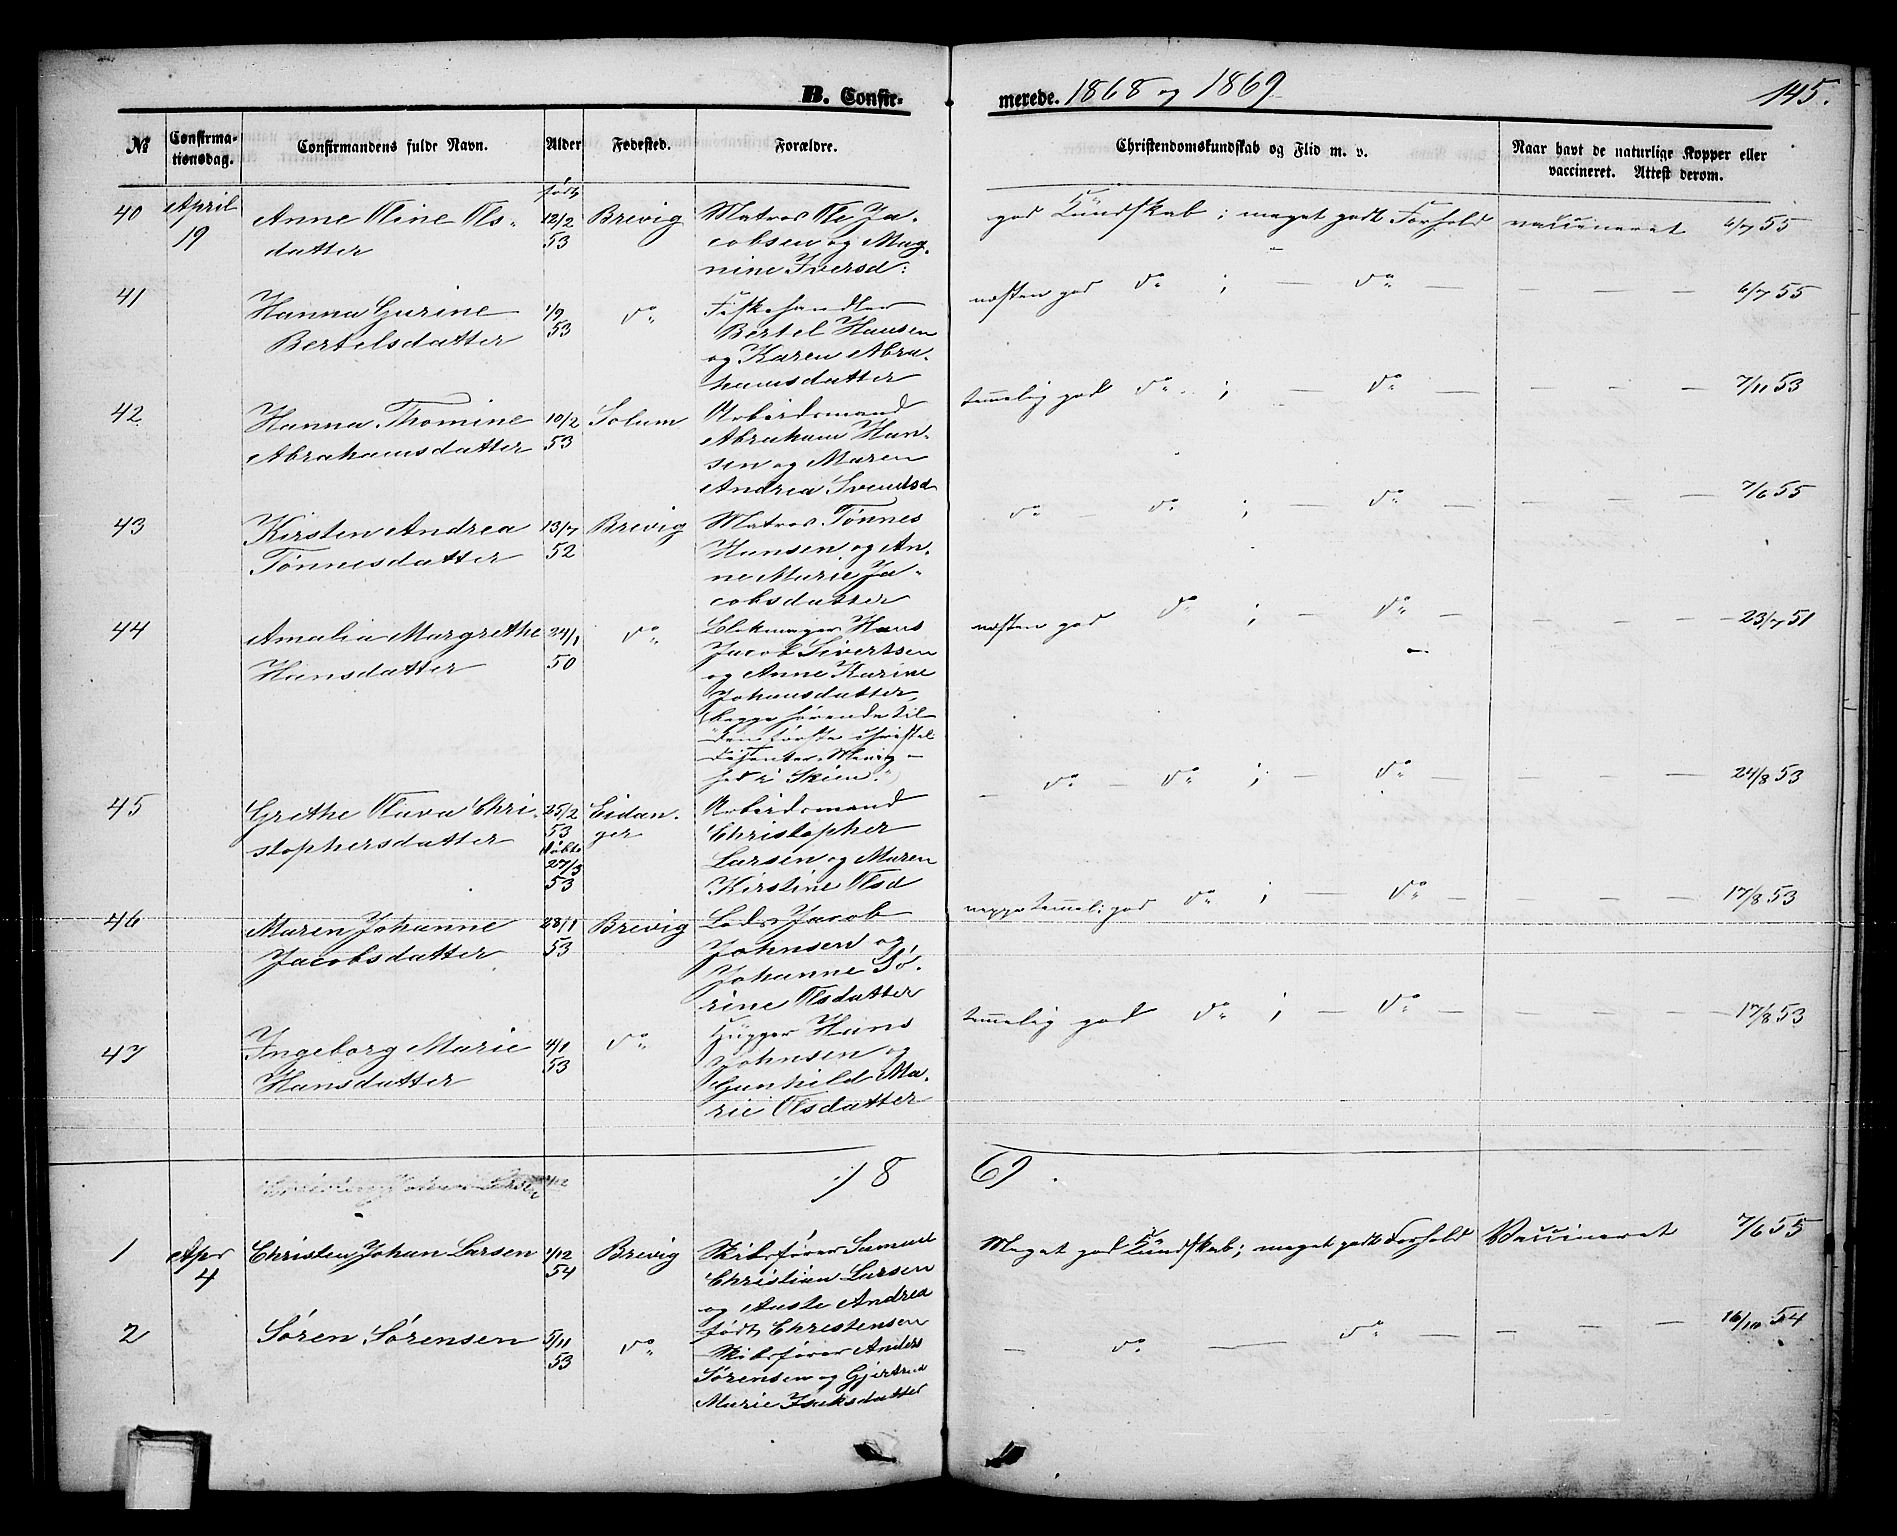 B. Confir-
merede. 1868 og 1869
145.
№
Confirma-
tionsdag.
Confirmandens fulde Navn.
Alder
Fødested.
Forældre.
Christendomskundskab og Flid m. v.
Naar havt de naturlige Kopper eller
vaccineret. Attest derom.
40 April 19
Anne Oline Ols-
datter
født 12/2 53
Brevig
Matros Ole Ja-
cobsen og Mag-
nine Iversd:
god Kundskab; meget godt Forhold
vaccineret 6/7 55
41
Hanna Gurine
Bertelsdatter
1/9 53
do
Fiskehandler
Bertel Hansen
og Karen Abra-
hamsdatter
næsten god do ; — do —
— — — 6/7 55
42
Hanna Thomine
Abrahamsdatter
10/2 53
Solum
Arbeidsmand
Abraham Han-
sen og Maren
Andrea Svendsd
temmelig god do ; — do —
— — — 7/11 53
43
Kirsten Andrea
Tønnesdatter
13/7 52
Brevig
Matros Tønnes
Hansen og An-
ne Marie Ja-
cobsdatter
do — do ; — do —
— — — 7/6 55
44
Amalia Margrethe
Hansdatter
24/1 50
do
Blikmager Hans
Jacob Sivertsen
og Anne Karine
Johansdatter
(begge hørende til
den første christel.
Dissenter-Menig-
hed i Skien.)
næsten god do ; — do —
— — — 23/7 51
45
Grethe Olava Chri-
stophersdatter
25/2 53
døbt 27/3 53
Eidan-
ger
Arbeidsmand
Christopher
Larsen og Maren
Kirstine Olsd
— do — do ; — do —
— — — 24/8 53
46
Maren Johanne
Jacobsdatter
28/1 53
Brevig
Lods Jacob
Johnsen og
Johanne Sø-
rine Olsdatter
neppe temmel: god do ; — do —
— — — 17/8 53
47
Ingeborg Marie
Hansdatter
4/1 53
do
Hugger Hans
Johnsen og
Gunhild Ma-
rie Olsdatter
temmelig god do ; — do —
— — — 17/8 53
18 69.
1 Apr 4
Christen Johan Larsen
1/12 54
Brevig
Skibsfører Samuel
Christian Larsen
og Aaste Andrea
født Christensen
Meget god Kundskab; meget godt Forhold
Vaccineret 7/6 55
2
Søren Sørensen
5/11 53
do
Skibsfører Anders
Sørensen og Gjertrud
Marie Isaksdatter
— do — do —
— — — 16/10 54